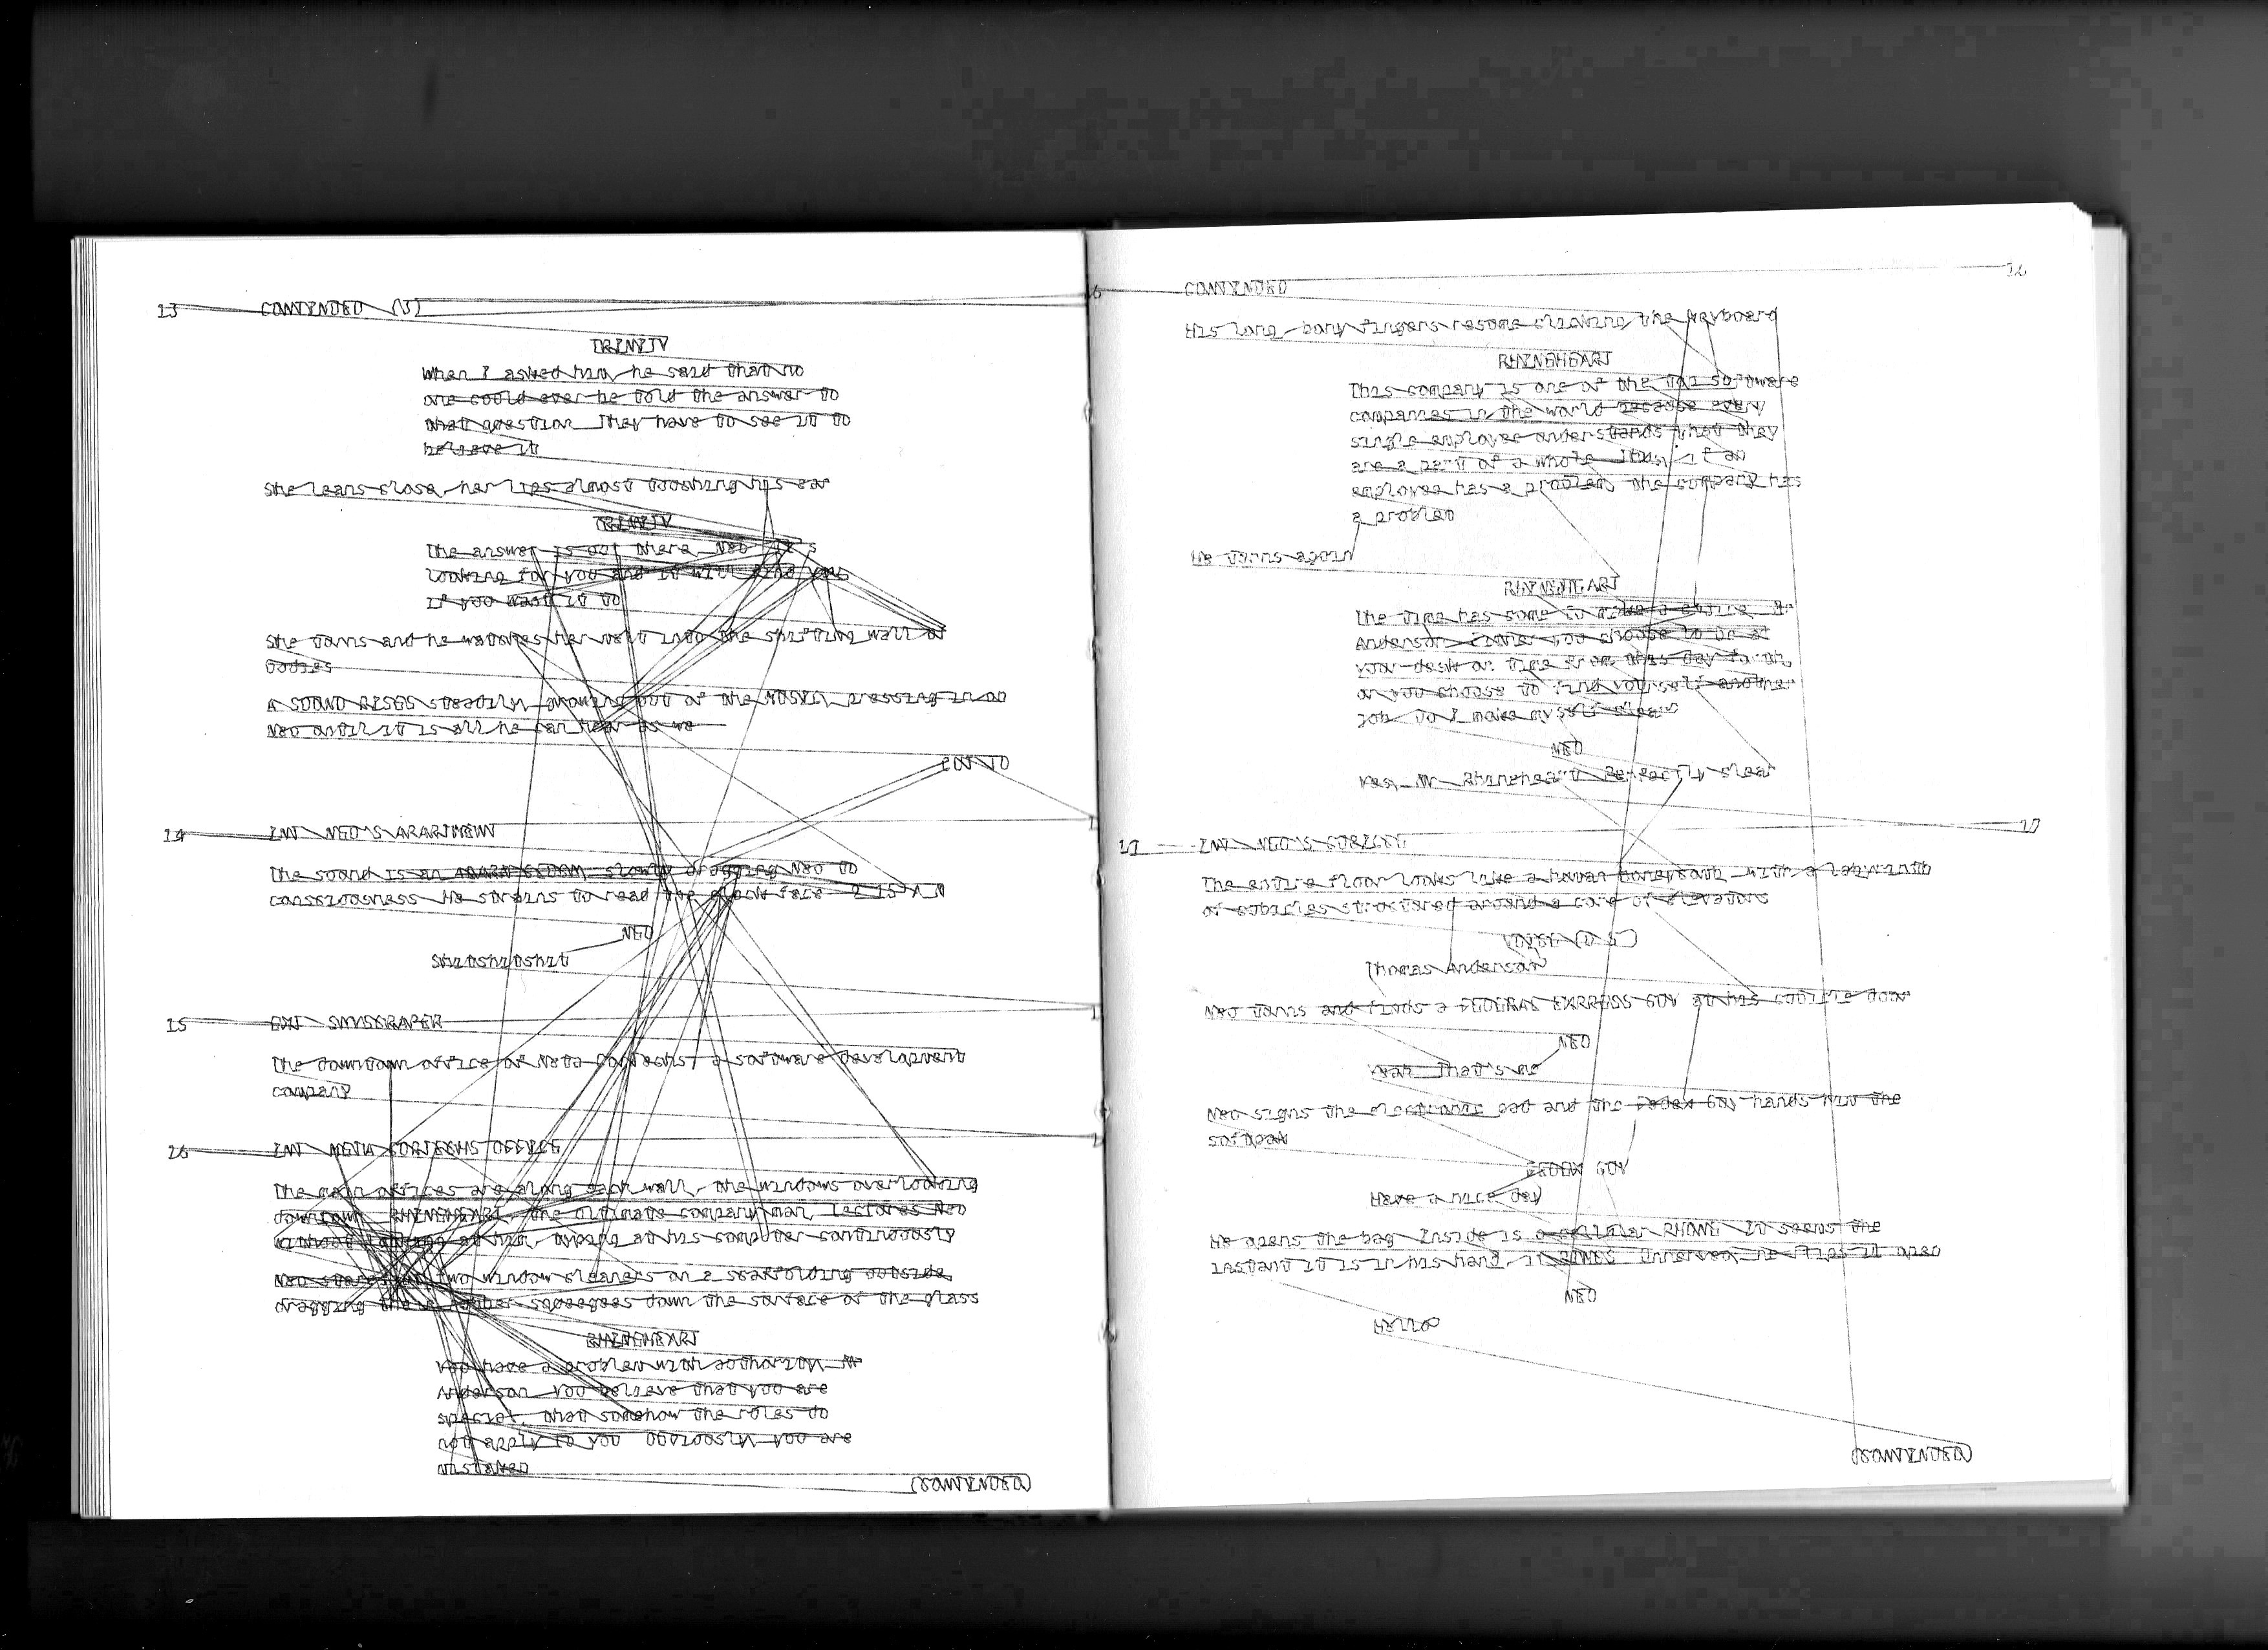 13 CONTINUED (3)
TRINITY
When I asked him, he said that no
one could ever be told the answer to
that question They have to see it to
believe it
She leans close, her lips almost touching his ear
TRINITY
The answer is out there Neo It's
looking for you and it will find you
if you want it to
She turns and he watches her melt into the shifting wall of
bodies
A SOUND RISES steadily growing out of the MUSIC, pressing in on
Neo until it is all he can hear as we
CUT TO
14 INT NEO'S APARTMENT
The sound is an ALARM CLOCK slowly dragging Neo to
consciousness He strains to read the clock face 9 15 A M
NEO
Shitshitshit
15 EXT SKYSCRAPER
The downtown office of Meta CorTechs, a software development
company
16 INT META CORTECHS OFFICE
The main offices are along each wall, the windows overlooking
downtown RHINEHEART, the ultimate company man, lectures Neo
without looking at him, typing at his computer continuously
Neo stares at two window cleaners on a scaffolding outside,
dragging their rubber squeegees down the surface of the glass
RHINEHEART
You have a problem with authority, Mr
Anderson You believe that you are
special, that somehow the rules do
not apply to you Obviously you are
mistaken
(CONTINUED)
16 CONTINUED 16
His long, bony fingers resume clicking the keyboard
RHINEHEART
This company is one of the top software
companies in the world because every
single employee understands that they
are a part of a whole Thus, if an
employee has a problem the company has
a problem
He turns again
RHINEHEART
The time has come to make a choice, Mr
Anderson Either you choose to be at
your desk on time from this day forth,
or you choose to find yourself another
job Do I make myself clear
NEO
Yes, Mr Rhineheart Perfectly clear
17 INT NEO'S CUBICLE 17
The entire floor looks like a human honeycomb, with a labyrinth
of cubicles structured around a core of elevators
VOICE (O S )
Thomas Anderson
Neo turns and finds a FEDERAL EXPRESS GUY at his cubicle door
NEO
Yeah That's me
Neo signs the electronic pad and the Fedex Guy hands him the
softpak
FEDEX GUY
Have a nice day
He opens the bag Inside is a cellular PHONE It seems the
instant it is in his hand, it RINGS Unnerved, he flips it open
NEO
Hello
(CONTINUED)